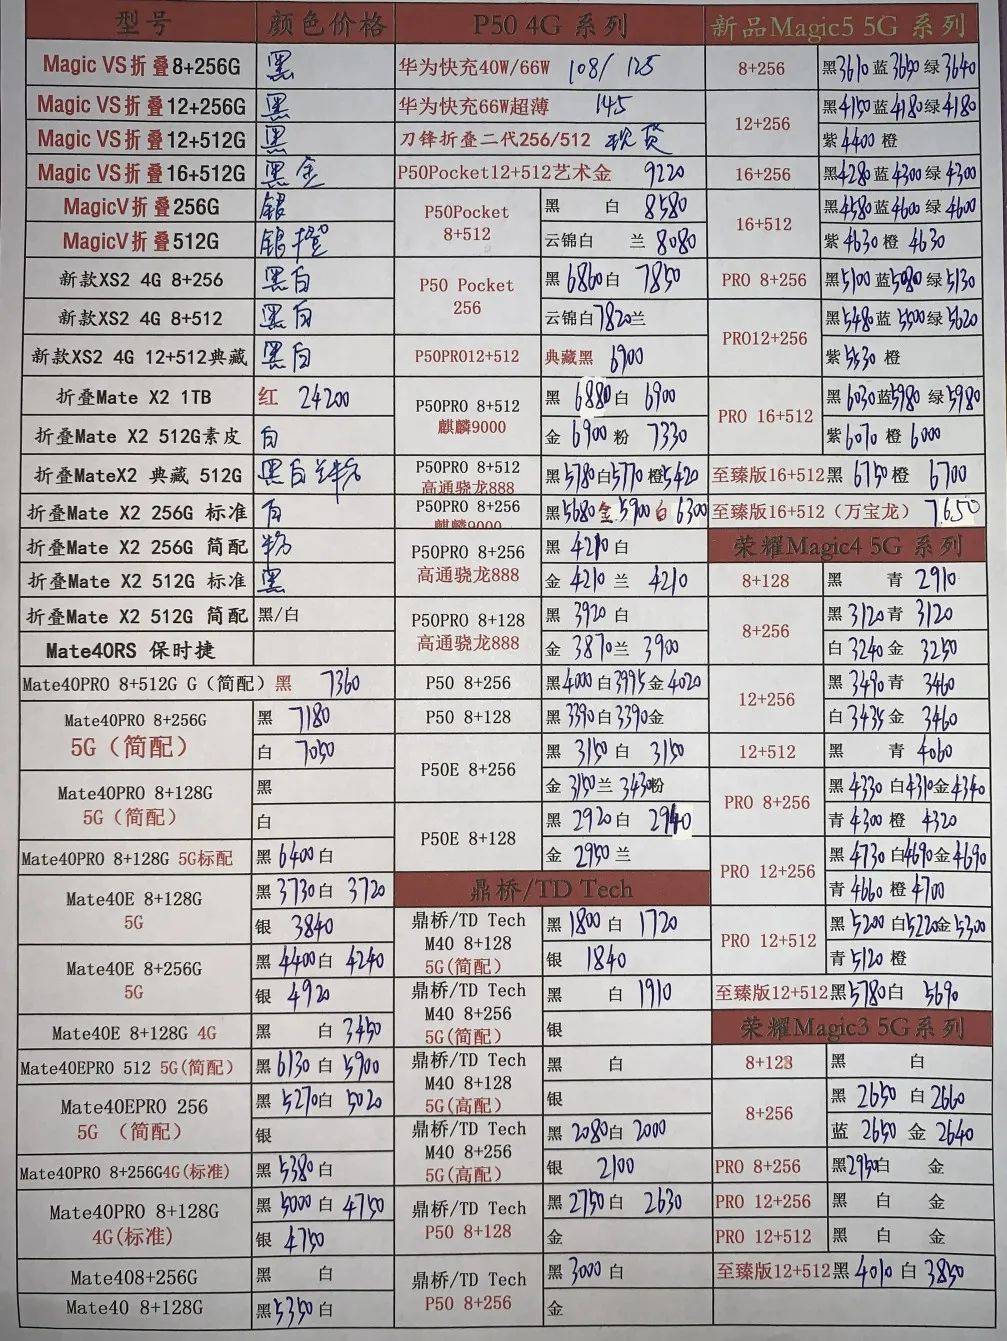 型号 颜色价格 P50 4G 系列 新品Magic5 5G 系列
Magic VS折叠8+256G 黑 华为快充40W/66W 108/ 125 8+256 黑3610 蓝3650 绿3640
Magic VS折叠12+256G 黑 华为快充66W超薄 145 12+256 黑4150 蓝4180 绿4180
Magic VS折叠12+512G 黑 刀锋折叠二代256/512 现货 紫4400 橙
Magic VS折叠16+512G 黑金 P50Pocket12+512艺术金 9220 16+256 黑4280 蓝4300 绿4300
MagicV折叠256G 银 P50Pocket 8+512 黑 白 8580 16+512 黑4580 蓝4600 绿4600
MagicV折叠512G 银橙 云锦白 兰 8080 紫4630 橙4630
新款XS2 4G 8+256 黑白 P50 Pocket 256 黑6860 白 7850 PRO 8+256 黑5100 蓝5080 绿5130
新款XS2 4G 8+512 黑白 云锦白7820 兰 PRO12+256 黑5480 蓝5500 绿5620
新款XS2 4G 12+512典藏 黑白 P50PRO12+512 典藏黑 6900 紫5530 橙
折叠Mate X2 1TB 红 24200 P50PRO 8+512 麒麟9000 黑 6880 白 6900 PRO 16+512 黑6030 蓝5980 绿5980
折叠Mate X2 512G素皮 白 金 6900 粉 7330 紫6070 橙6000
折叠MateX2 典藏 512G 黑白兰粉 P50PRO 8+512 高通骁龙888 黑5780 白5770 橙5420 至臻版16+512 黑 6750 橙 6700
折叠Mate X2 256G 标准 白 P50PRO 8+256 麒麟9000 黑5680 金5900 白6300 至臻版16+512（万宝龙） 7650
折叠Mate X2 256G 简配 粉 P50PRO 8+256 高通骁龙888 黑 4210 白 荣耀Magic4 5G 系列
折叠Mate X2 512G 标准 黑 金 4210 兰 4210 8+128 黑 青 2910
折叠Mate X2 512G 简配 黑/白 P50PRO 8+128 高通骁龙888 黑 3920 白 8+256 黑 3120 青 3120
Mate40RS 保时捷 金 3870 兰 3900 白 3240 金 3250
Mate40PRO 8+512G G（简配） 黑 7360 P50 8+256 黑4000 白3995 金4020 12+256 黑 3490 青 3460
Mate40PRO 8+256G 5G（简配） 黑 7180 P50 8+128 黑3390 白3390 金 白 3435 金 3460
白 7050 P50E 8+256 黑 3150 白 3150 12+512 黑 青 4060
Mate40PRO 8+128G 5G（简配） 黑 金 3150 兰 3430 粉 PRO 8+256 黑 4330 白4310 金4340
白 P50E 8+128 黑 2920 白 2940 青 4300 橙 4320
Mate40PRO 8+128G 5G标配 黑 6400 白 金 2950 兰 PRO 12+256 黑 4730 白4690 金4690
Mate40E 8+128G 5G 黑 3730 白 3720 鼎桥/TD Tech 青4660 橙4700
银 3840 鼎桥/TD Tech M40 8+128 5G(简配) 黑 1800 白 1720 PRO 12+512 黑 5200 白5220 金5300
Mate40E 8+256G 5G 黑 4400 白 4240 银 1840 青5120 橙
银 4920 鼎桥/TD Tech M40 8+256 5G(简配) 黑 白 1910 至臻版12+512 黑5780 白 5690
Mate40E 8+128G 4G 黑 白 3450 银 荣耀Magic3 5G系列
Mate40EPRO 512 5G(简配) 黑 6130 白 5900 鼎桥/TD Tech M40 8+128 5G(高配) 黑 白 8+128 黑 白
Mate40EPRO 256 5G （简配） 黑 5270 白 5020 银 8+256 黑 2650 白2660
银 鼎桥/TD Tech M40 8+256 5G(高配) 黑 2080 白 2000 蓝 2650 金 2640
Mate40PRO 8+256G4G(标准) 黑 5380 白 银 2100 PRO 8+256 黑2950 白 金
Mate40PRO 8+128G 4G(标准) 黑 5000 白 4750 鼎桥/TD Tech P50 8+128 黑 2750 白 2630 PRO 12+256 黑 白 金
银 4750 金 PRO 12+512 黑 白 金
Mate408+256G 黑 白 鼎桥/TD Tech P50 8+256 黑 3000 白 至臻版12+512 黑 4010 白 3850
Mate40 8+128G 黑5350 白 金